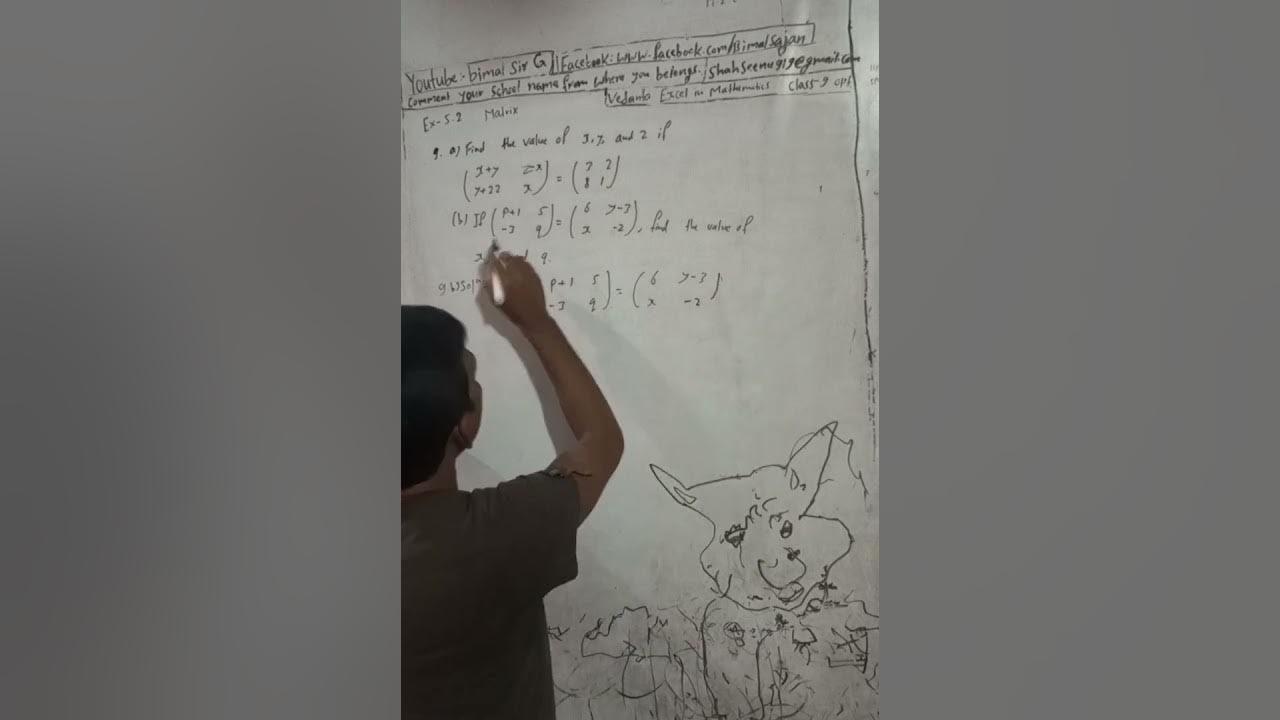 Youtube:- bimal Sir G | Facebook: www.facebook.com/Bimalsajan
Comment your School name from where you belongs. / Shahseenu919@gmail.com
Vedanta Excel in Mathematics Class 9 opt
Ex-5.2 Matrix
9. a) Find the value of x, y, and z if
( x+y z-x ) = ( 7 2 )
( y+2z x ) ( 8 1 )
(b) If ( p+1 5 ) = ( 6 y-3 )
( -3 q ) ( x -2 ), find the value of
x q.
9 b) Soln p+1 5 ) = ( 6 y-3 )
-3 q ) ( x -2 )